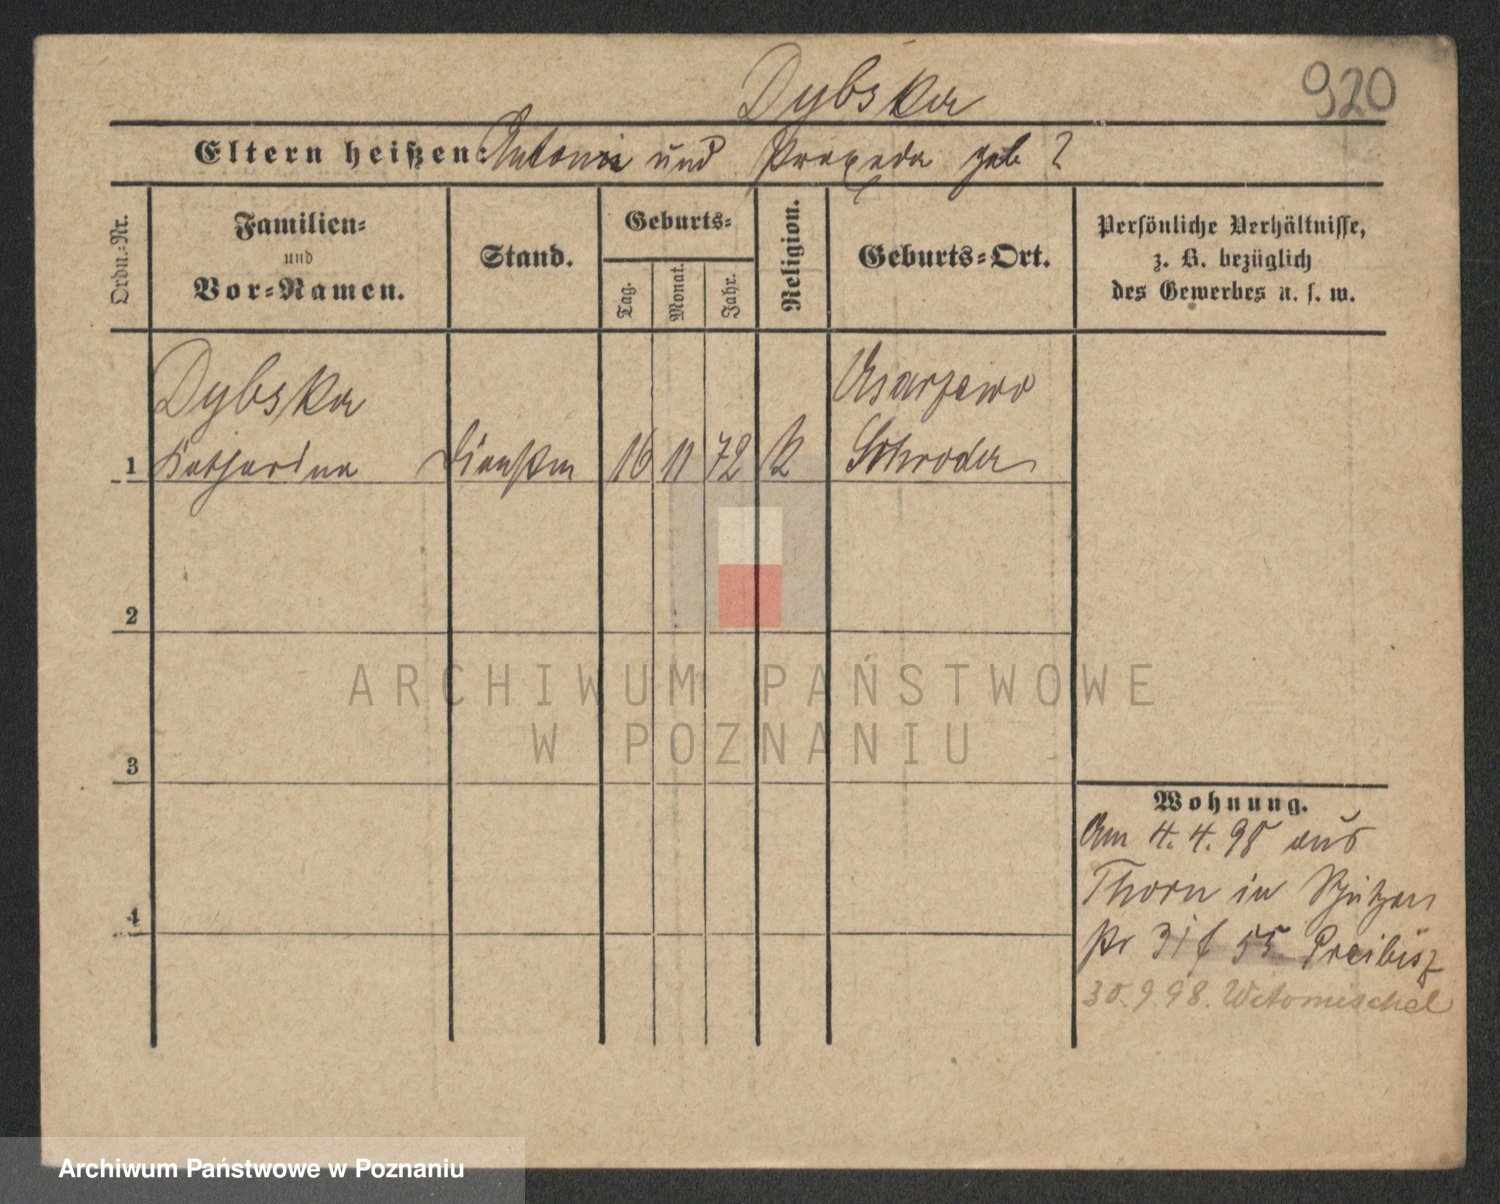 920
Dybska
Eltern heißen: Antoni und Praxeda geb ?
Ordn.=Nr.
Familien=
und
Vor=Namen.
Stand.
Geburts=
Tag.
Monat.
Jahr.
Religion.
Geburts=Ort.
Persönliche Verhältnisse,
z. B. bezüglich
des Gewerbes u. s. w.
Dybska Usarzewo
1 Katharina Dienstm 16 11 72 K Schroda
2
3
4
Wohnung.
Am 4.4.98 aus
Thorn in Schützen
str 31 f 55 Preibisz
30.9.98. Wetomischel
ARCHIWUM PAŃSTWOWE
W POZNANIU
Archiwum Państwowe w Poznaniu